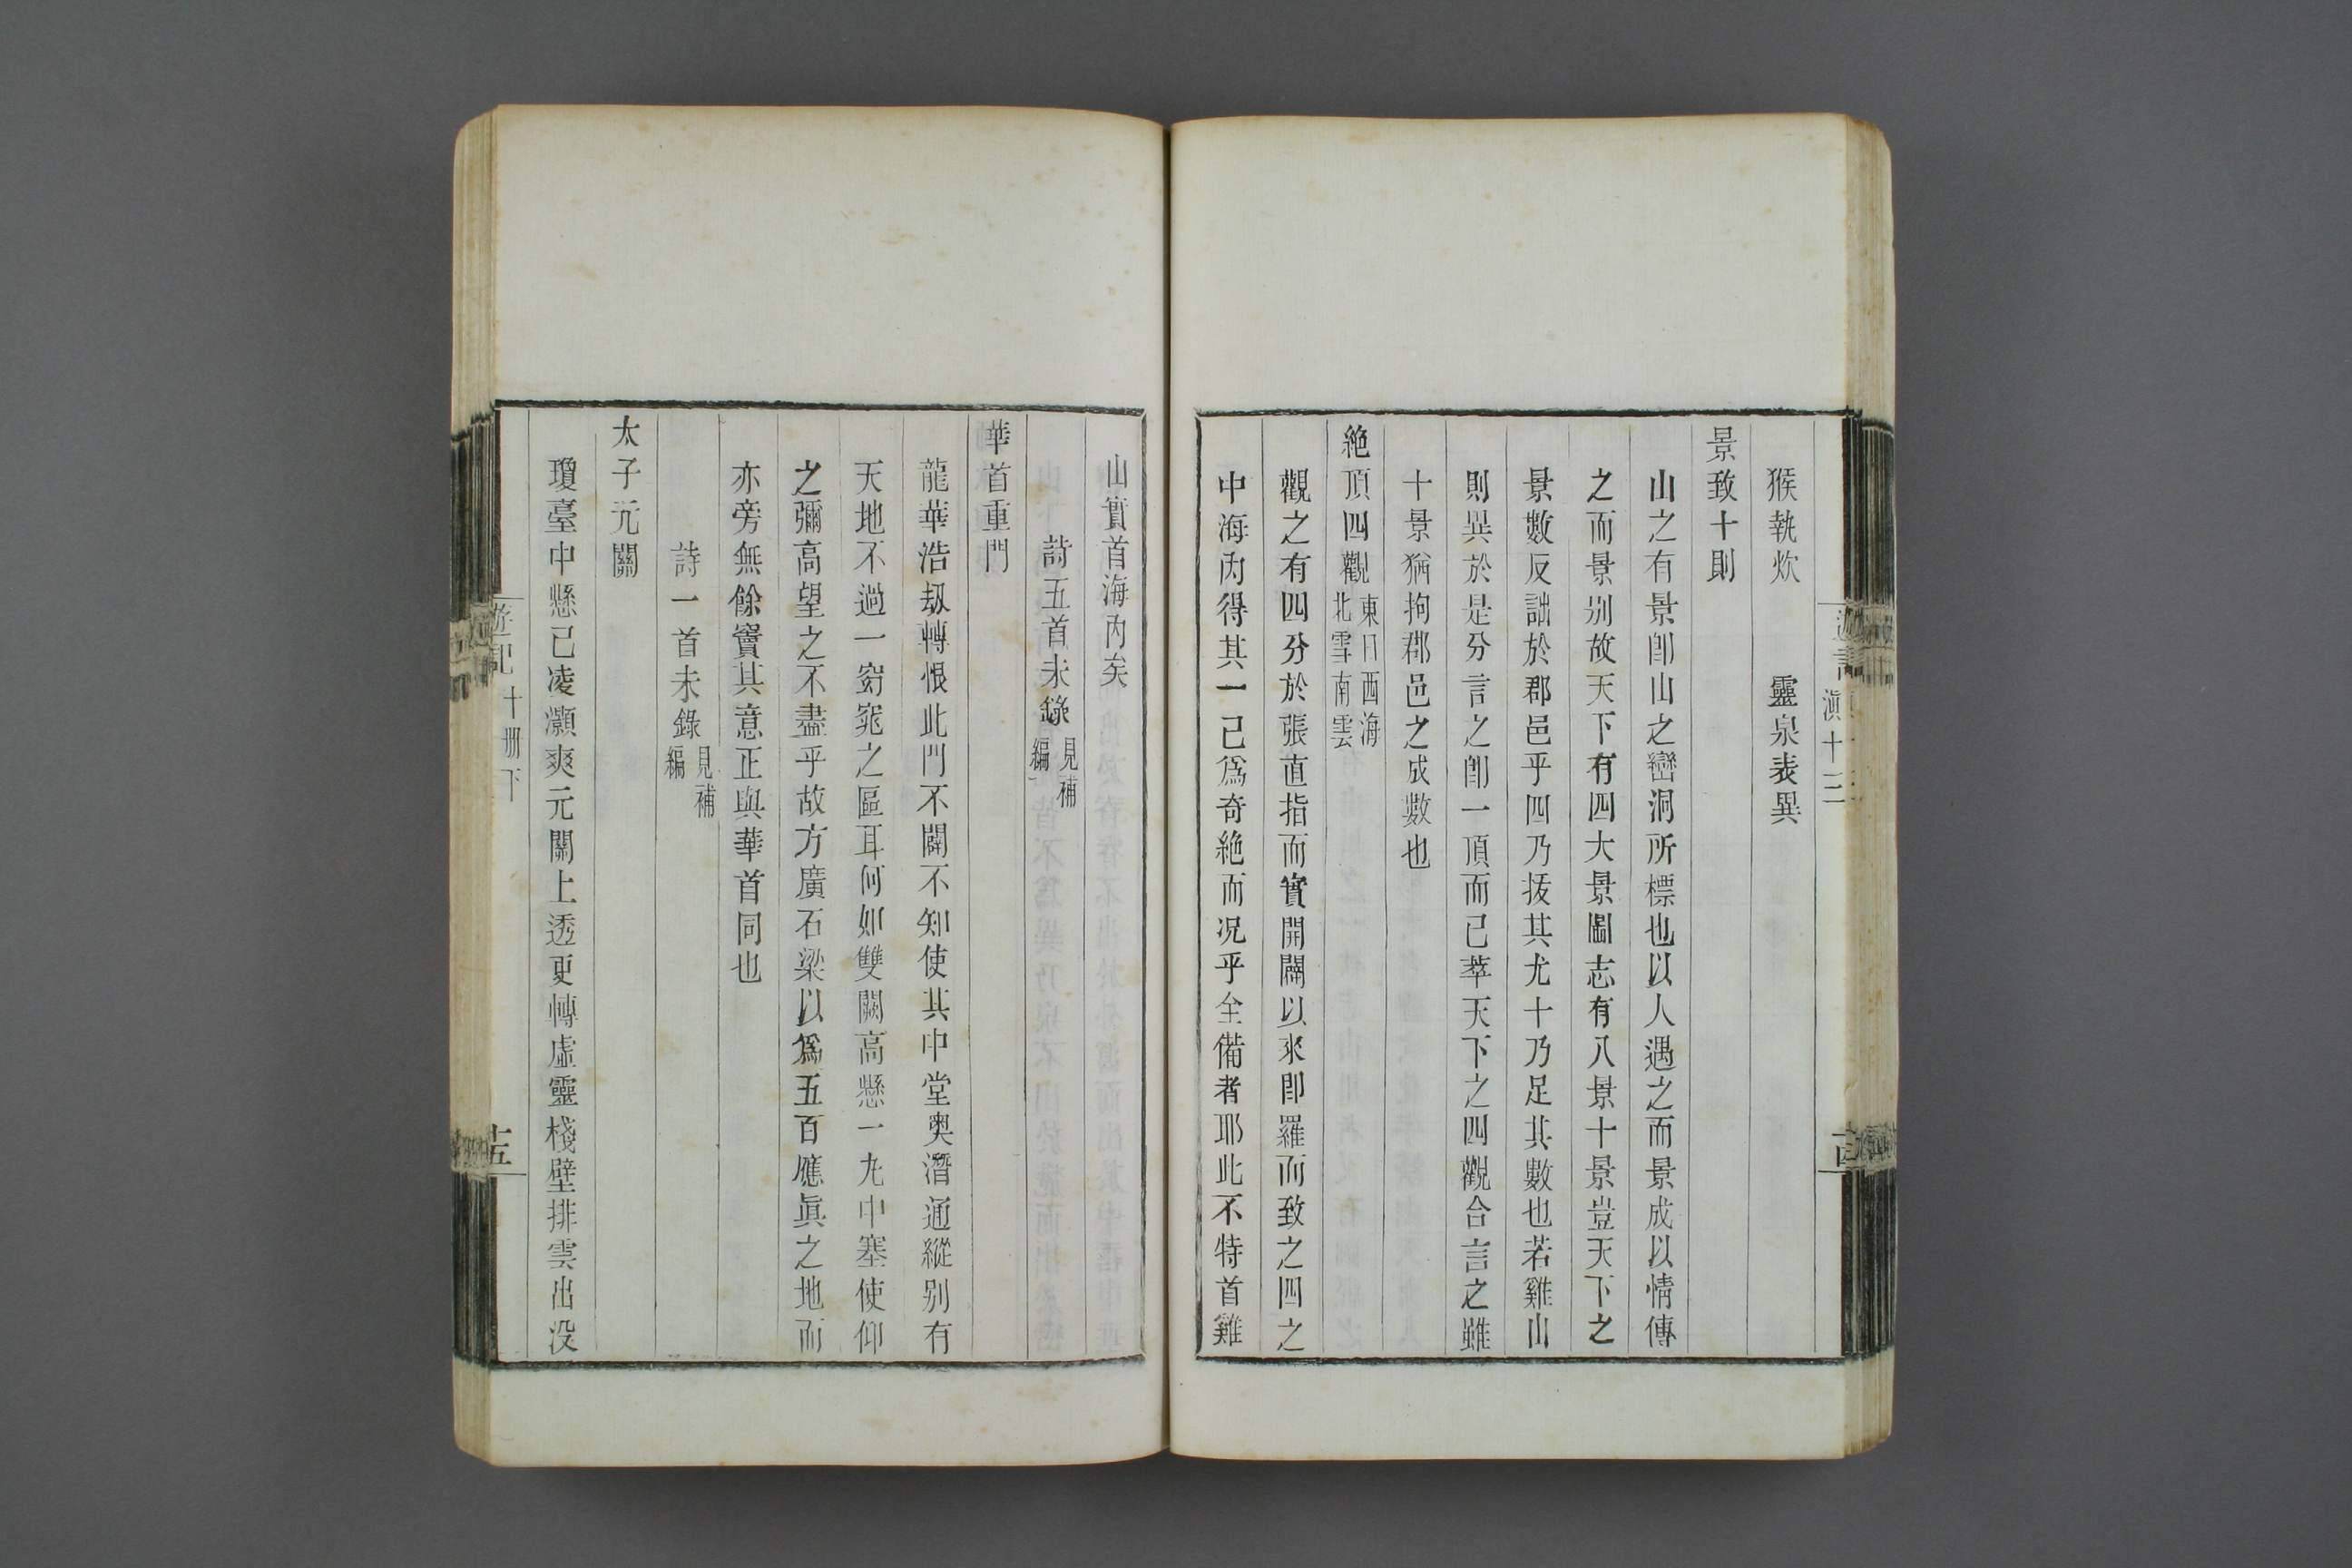 猴執炊　靈泉表異
景致十則
山之有景卽山之巒洞所標也以人遇之而景成以情傳
之而景别故天下有四大景圖志有八景十景豈天下之
景數反詘於郡邑乎四乃拔其尤十乃足其數也若雞山
則異於是分言之卽一頂而已萃天下之四觀合言之雖
十景猶拘郡邑之成數也
絶頂四觀東日西海北雪南雲
觀之有四分於張直指而實開闢以來卽羅而致之四之
中海内得其一已爲奇絶而况乎全備者耶此不特首雞
山實首海内矣
詩五首未錄見補編
華首重門
龍華浩刼轉恨此門不闢不知使其中堂奥潛通縱别有
天地不過一窈窕之區耳何如雙闕高懸一丸中塞使仰
之彌高望之不盡乎故方廣石梁以爲五百應眞之地而
亦旁無餘竇其意正與華首同也
詩一首未錄見補編
太子元關
瓊臺中懸已凌灝爽元關上透更轉虛靈棧壁排雲出没
遊記 十册下
十五
滇十三